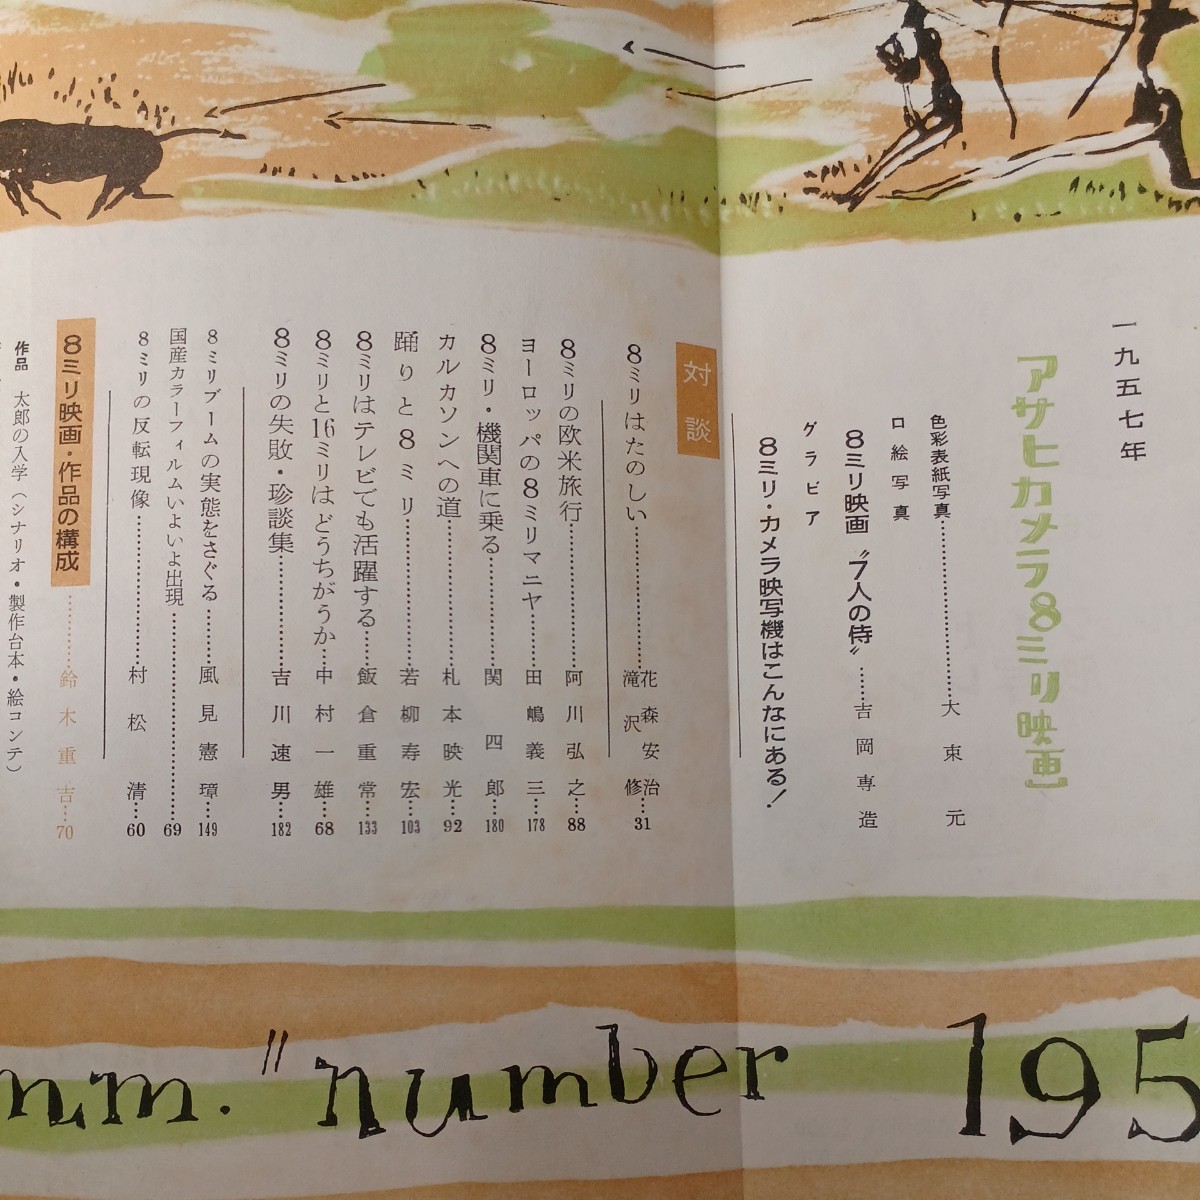 一九五七年
アサヒカメラ8ミリ映画
色彩表紙写真……………大束元
口絵写真
8ミリ映画〝7人の侍〟……吉岡専造
グラビア
8ミリ・カメラ映写機はこんなにある!
対談
8ミリはたのしい……………花森安治
滝沢修…31
8ミリの欧米旅行……………阿川弘之…88
ヨーロッパの8ミリマニヤ……田嶋義三…178
8ミリ・機関車に乗る…………関四郎…180
カルカソンへの道……………札本映光…92
踊りと8ミリ……………若柳寿宏…103
8ミリはテレビでも活躍する……飯倉重常…133
8ミリと16ミリはどうちがうか…中村一雄…68
8ミリの失敗・珍談集…………吉川速男…182
8ミリブームの実態をさぐる……風見憲璋…149
国産カラーフィルムいよいよ出現……………69
8ミリの反転現像……………村松清…60
8ミリ映画・作品の構成………鈴木重吉…70
作品 太郎の入学(シナリオ・製作台本・絵コンテ)
m.m. "number 195